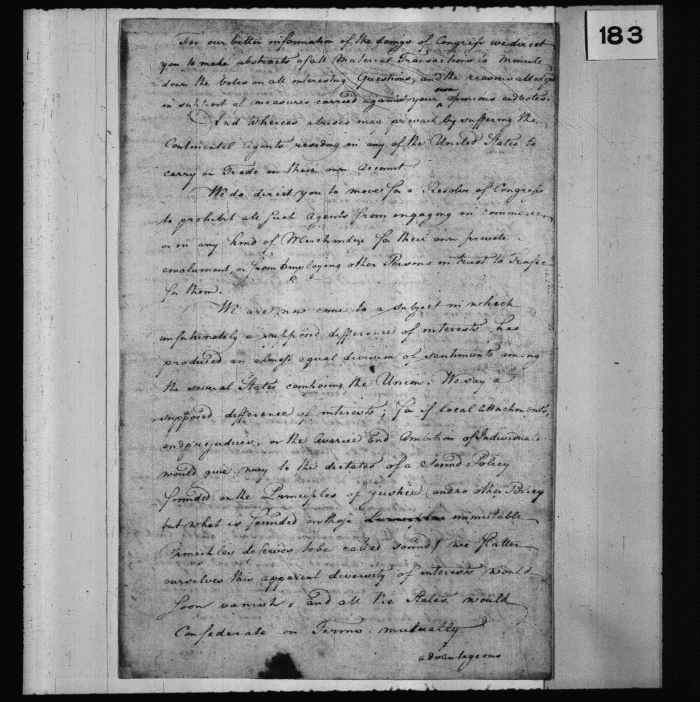 183
For our better information of the doings of Congress we direct
you to make abstracts of all Material Transactions to Minute
down the Votes on all interesting Questions, and the reasons alledged
own
in support of measures carried against your opinions and votes.
And Whereas abuses may prevail by suffering the
Continental Agents residing in any of the United States to
carry on Trade on their own Account.
We do direct you to move for a Resolve of Congress
to prohibit all such Agents from engaging in commerce
or in any kind of Merchandize for their own private
emolument, or from Employing other Persons in trust to Traffic
for them.
We are now come to a subject in which
unfortunately a supposed difference of interests has
produced an almost equal division of sentiments among
the several States composing the Union. We say a
supposed difference of interests; for if local attachments,
and prejudices, or the Avarice and Ambition of Individuals
would give way to the dictates of a Sound Policy
founded on the Principles of justice (and no other Policy
but what is founded on those immutable
Principles deserves to be called sound) we flatter
ourselves this apparent diversity of interests would
soon vanish, and all the States would
Confederate on Terms mutually
advantageous